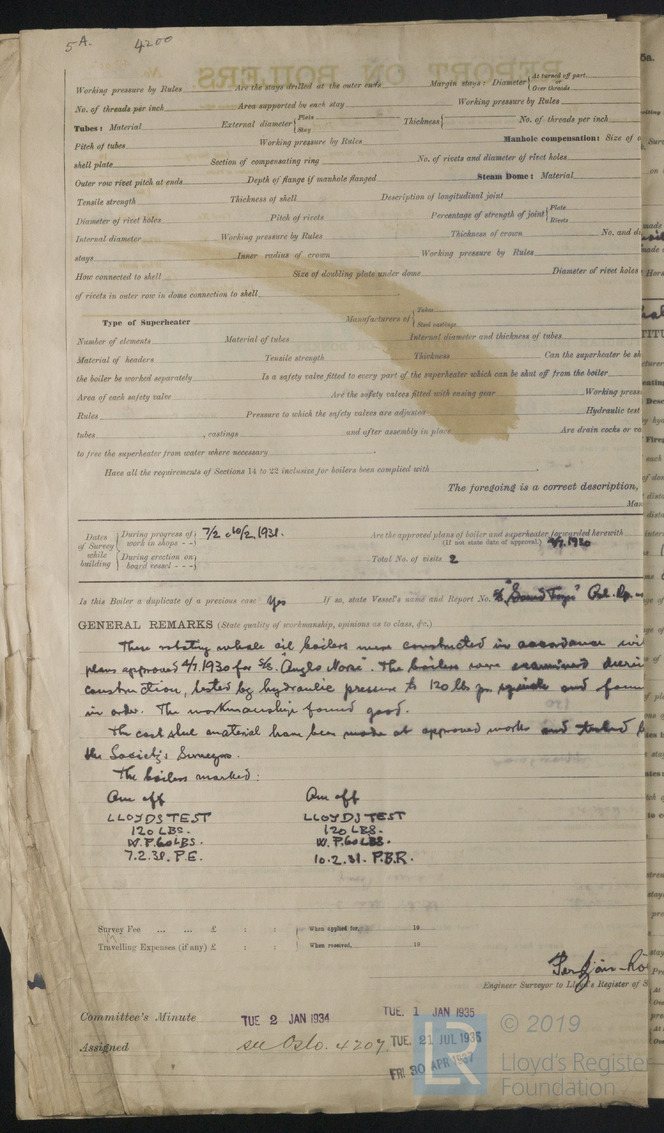 5A. 4200
REPORT ON BOILERS
Working pressure by Rules Are the stays drilled at the outer ends Margin stays: Diameter { At turned off part or Over threads
No. of threads per inch Area supported by each stay Working pressure by Rules
Tubes: Material External diameter { Plate Stay Thickness { No. of threads per inch
Pitch of tubes Working pressure by Rules Manhole compensation: Size of
shell plate Section of compensating ring No. of rivets and diameter of rivet holes
Outer row rivet pitch at ends Depth of flange if manhole flanged Steam Dome: Material
Tensile strength Thickness of shell Description of longitudinal joint
Diameter of rivet holes Pitch of rivets Percentage of strength of joint { Plate Rivets
Internal diameter Working pressure by Rules Thickness of crown No. and di
stays Inner radius of crown Working pressure by Rules
How connected to shell Size of doubling plate under dome Diameter of rivet holes
of rivets in outer row in dome connection to shell
Type of Superheater Manufacturers of { Tubes Steel castings
Number of elements Material of tubes Internal diameter and thickness of tubes
Material of headers Tensile strength Thickness Can the superheater be sh
the boiler be worked separately Is a safety valve fitted to every part of the superheater which can be shut off from the boiler
Area of each safety valve Are the safety valves fitted with easing gear Working press
Rules Pressure to which the safety valves are adjusted Hydraulic test
tubes , castings and after assembly in place Are drain cocks or
to free the superheater from water where necessary
Have all the requirements of Sections 14 to 22 inclusive for boilers been complied with
The foregoing is a correct description,
Man
Dates of Survey while building { During progress of work in shops - - } 7/2 10/2 1931. Are the approved plans of boiler and superheater forwarded herewith (If not state date of approval.) 4/7.1930
{ During erection on board vessel - - - } Total No. of visits 2
Is this Boiler a duplicate of a previous case Yes If so, state Vessel's name and Report No. S/S
GENERAL REMARKS (State quality of workmanship, opinions as to class, &c.)
These rotating whale oil boilers were constructed in accordance wi
plans approved 4/7.1930 for S/S. "Anglo Norse". The boilers were examined
construction, tested by hydraulic pressure to 120 lbs and foun
in order. The workmanship found good.
The cast steel material have been made at approved works and tested
the Society's Surveyors.
The boilers marked:
LLOYDS TEST LLOYDS TEST
120 LBS. 120 LBS.
W.P. 60 LBS. W.P. 60 LBS.
7.2.31. P.E. 10.2.31. P.B.R.
Survey Fee ... ... £ : : When applied for, 19
Travelling Expenses (if any) £ : : When received, 19
Engineer Surveyor to Lloyd's Register of S
Committee's Minute TUE 2 JAN 1934 TUE. 1 JAN 1935
Assigned see Oslo. 4207. TUE. 21 JUL 1936
FRI 30 APR 1937
LR © 2019
Lloyd's Register
Foundation